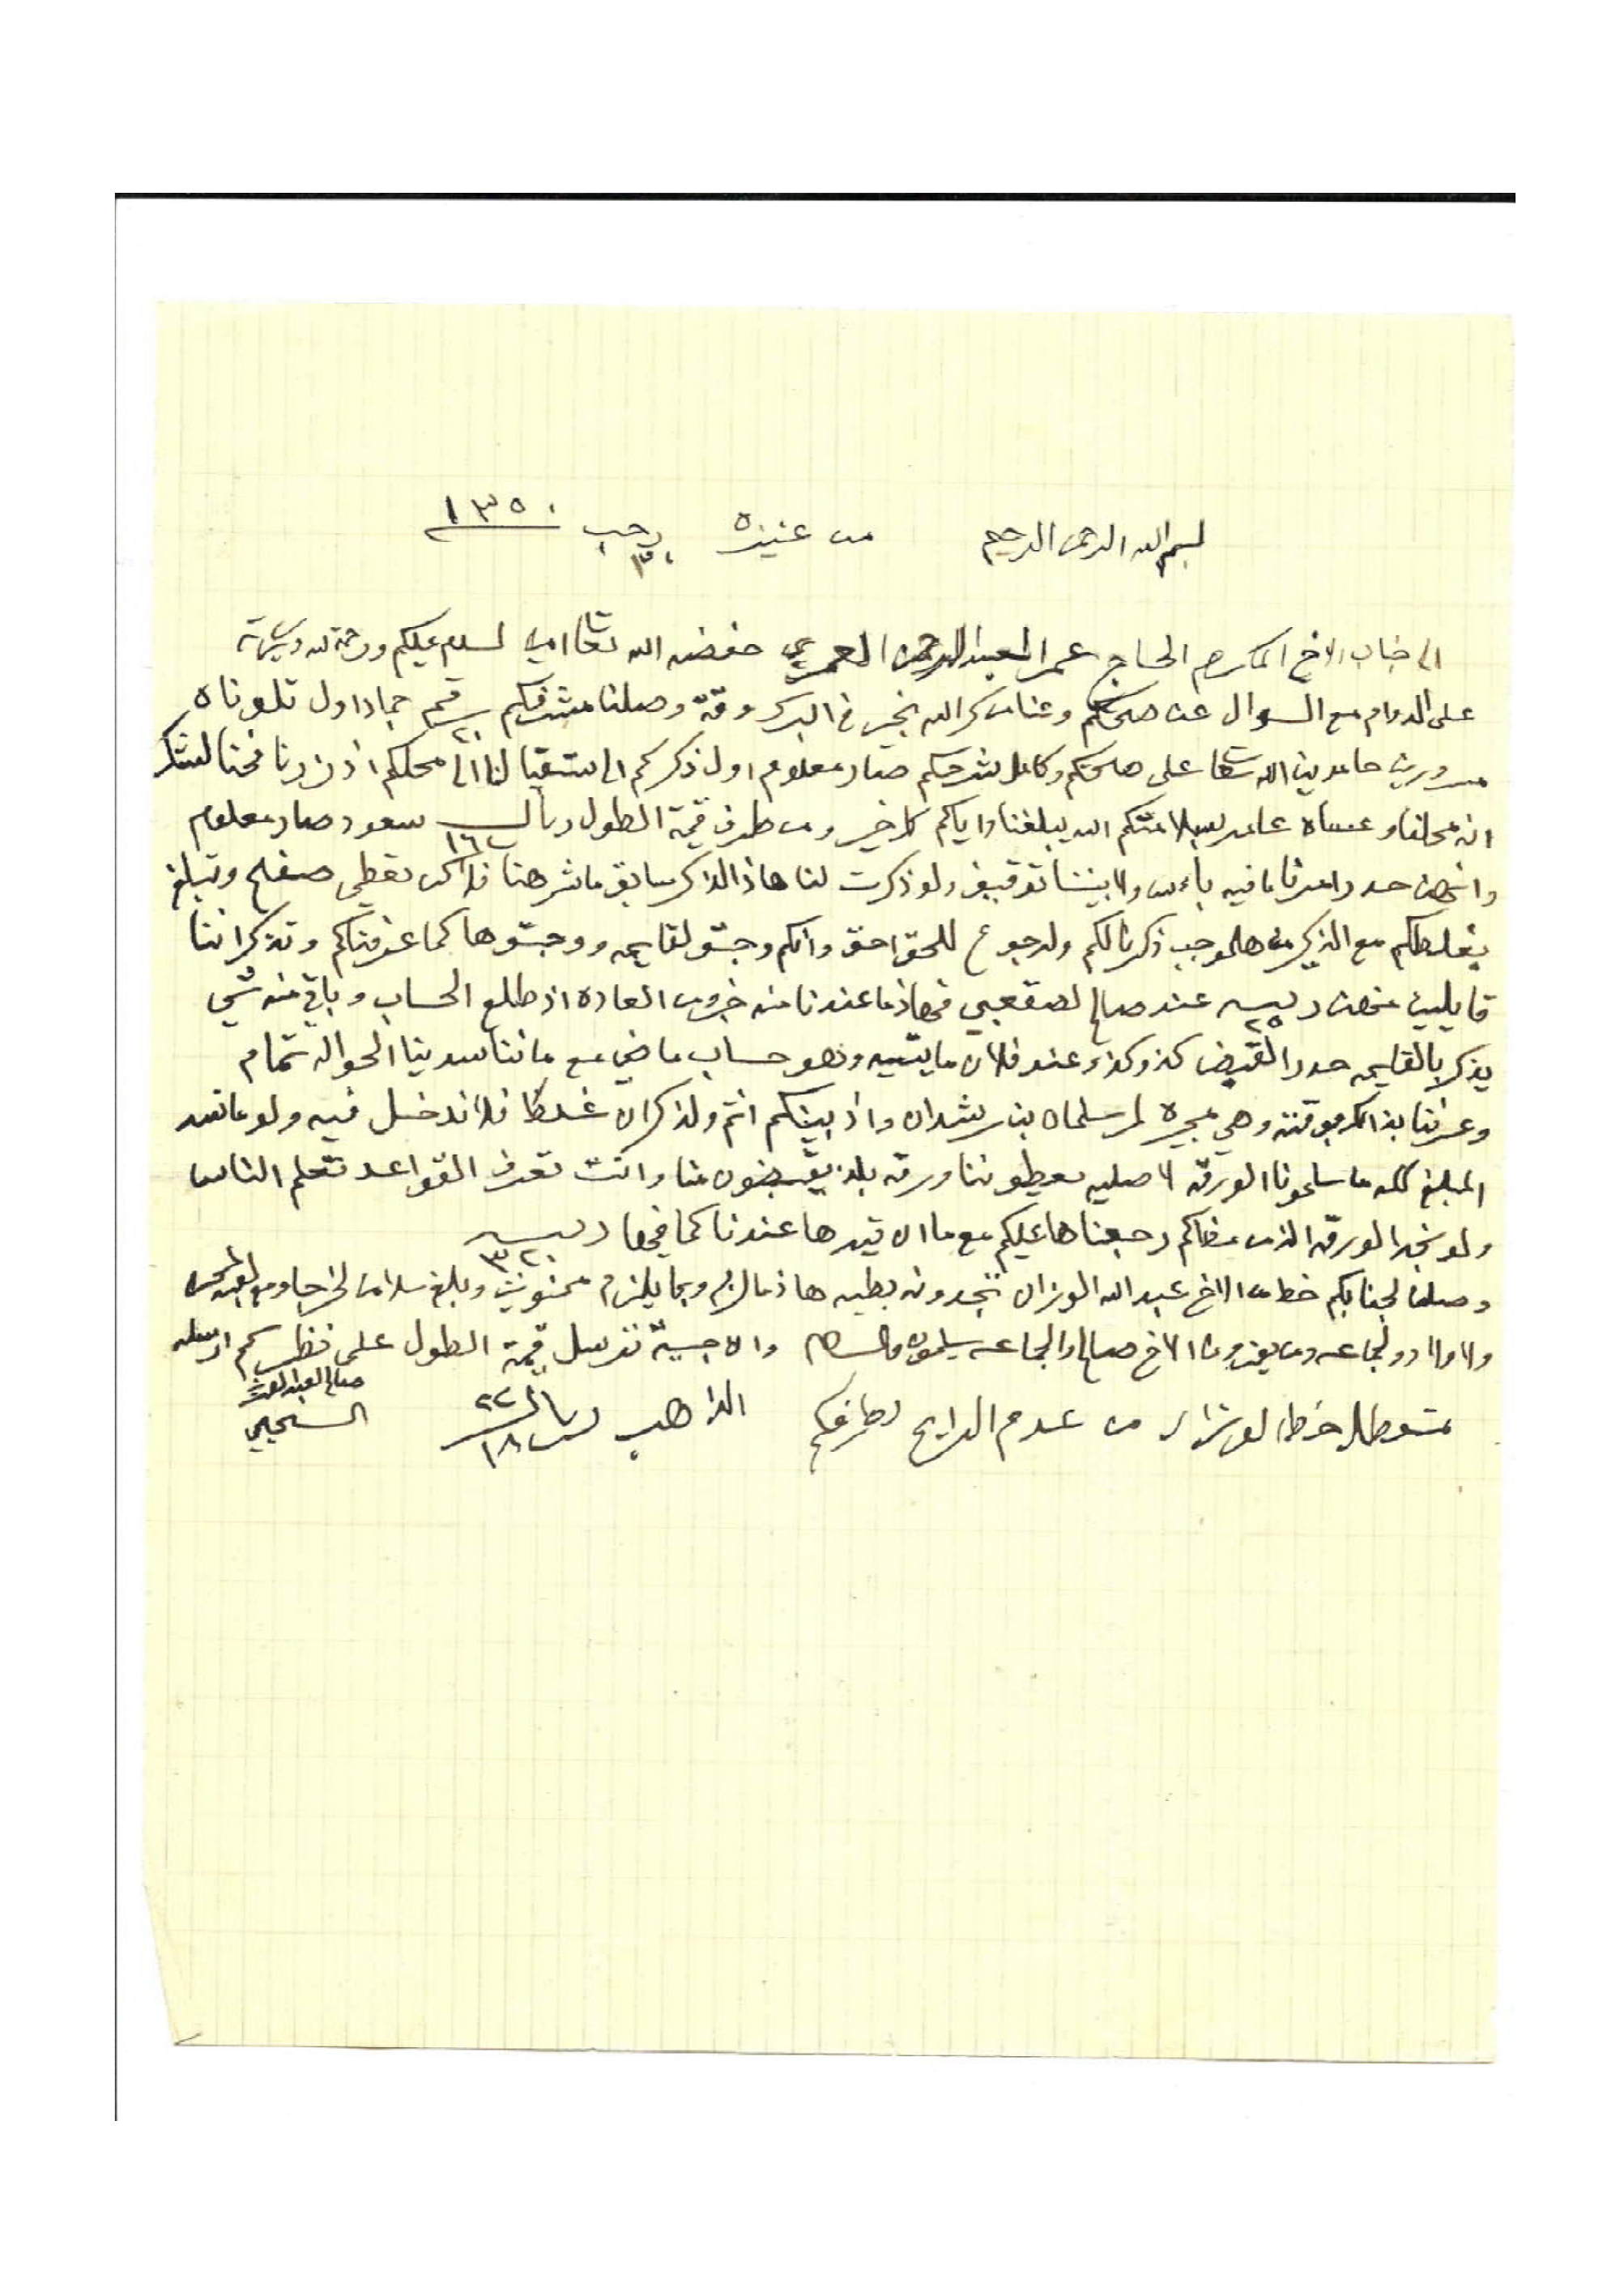 بسم الله الرحمن الرحيم من عنيزه ٣٠ رجب ١٣٥٠
الى جناب الاخ المكرم الحاج عمر العبد الرحمن العمري حفضه الله تعالى امين السلام عليكم ورحمة الله وبركاته
على الدوام مع السوال عن صحتكم وعنا من كرم الله بخير في ابرك وقت وصلنا مشرفكم رقم ٢٠ جماد اول تلوناه
مسرورين حامدين الله تعالى على صحتكم وكامل شرحكم صار معلوم اول ذكركم الى استقبالنا الى محلكم اذن ردنا فحنا لشكر
انه محلنا وعساه عامر بسلامتكم الله يبلغنا واياكم كل خير ومن طرف قيمة الطول ريال ١٦ سعود صار معلوم
وانكان حدر امرنا ما فيه باس ولا بيننا توقيف ولو ذكرت لنا هاذا الذكر سابق ما نشرهنا فلاكن تغطي صفلح وتبلغ
بغلطكم مع الذكر من هالموجب ذكرنا لكم ولرجوع للحق احق وانكم وجهتو لقايمه ووجهتوها كما عرفناكم وتذكر اننا
قايلين عنهن ريال ٢٥ عند صالح لصقعبي فهاذ ما عندنا منه خبر ومن العاده اذ طلع الحساب وباقي منه شي
يذكر بالقايمه حدر القبض كذ وكذ وعند فلان ما يتيه وهو حساب ماضي مع ما اننا سدينا الحواله تمام
وعرفنا بذالكم بوقته وهي مجيره لمر سلمان بن رشدان واذ بينكم انتم ولذكران غلط فلا ندخل فيه ولو ما نسد
المبلغ كله ما سلمونا الورقه الاصليه يعطوننا ورقه بلذ يقبضون منا وانت تعرف القواعد تعلم الناس
ولو نجد الورقه الذ من مضاكم رجعناها عليكم مع ما ان قيدها عندنا كما فيها ريال ٣٢٠
وصلنا لجنابكم خط من الاخ عبد الله الوزان تجدونه بطيه هاذ ما لزم وبما يلزم ممنونين وبلغ سلامنا لخ جاوس العبد المحسن
ولاولاد ولجماعه ومن يعز ومنا الاخ صالح والجماعه يسلمون والسلام والاجيت ترسل قيمة الطول على نظركم ارسله
متوطل خط الوزان من عدم الرايح لطرفكم الذاهب ريال ٢٢ ١٨ صالح العبد العزيز
السحيمي